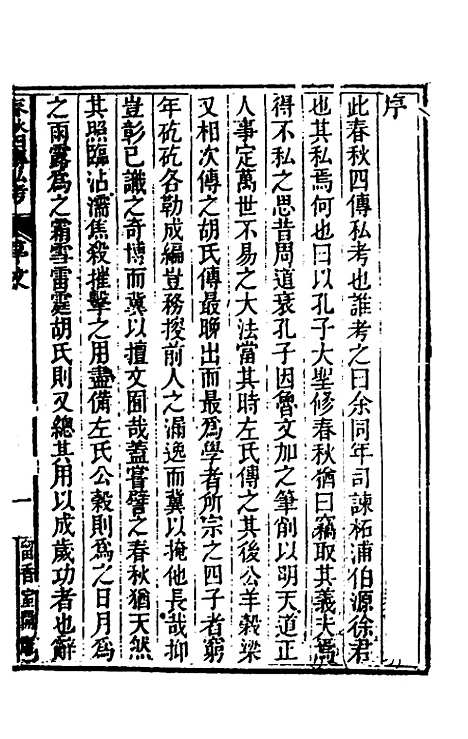 序
此春秋四傳私考也誰考之曰余同年司諫柘浦伯源徐君
也其私焉何也曰以孔子大聖修春秋猶曰竊取其義夫焉
得不私之思昔周道衰孔子因魯文加之筆削以明天道正
人事定萬世不易之大法當其時左氏傳之其後公羊穀梁
又相次傳之胡氏傳最晚出而最為學者所宗之四子者窮
年矻矻各勒成編豈務搜前人之漏逸而冀以掩他長哉抑
豈彰已識之奇博而冀以擅文囿哉蓋嘗譬之春秋猶天然
其照臨沾濡焦殺摧擊之用盡備左氏公穀則為之日月為
之雨露為之霜雪雷霆胡氏則又總其用以成歲功者也辭
春秋四傳私考
序文
一
留香室開雕